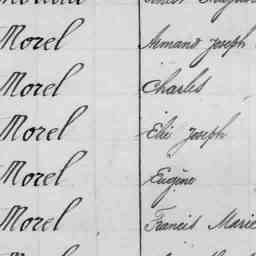 Morel Armand Joseph
Morel Charles
Morel Elie Joseph
Morel Eugène
Morel Francis Marie